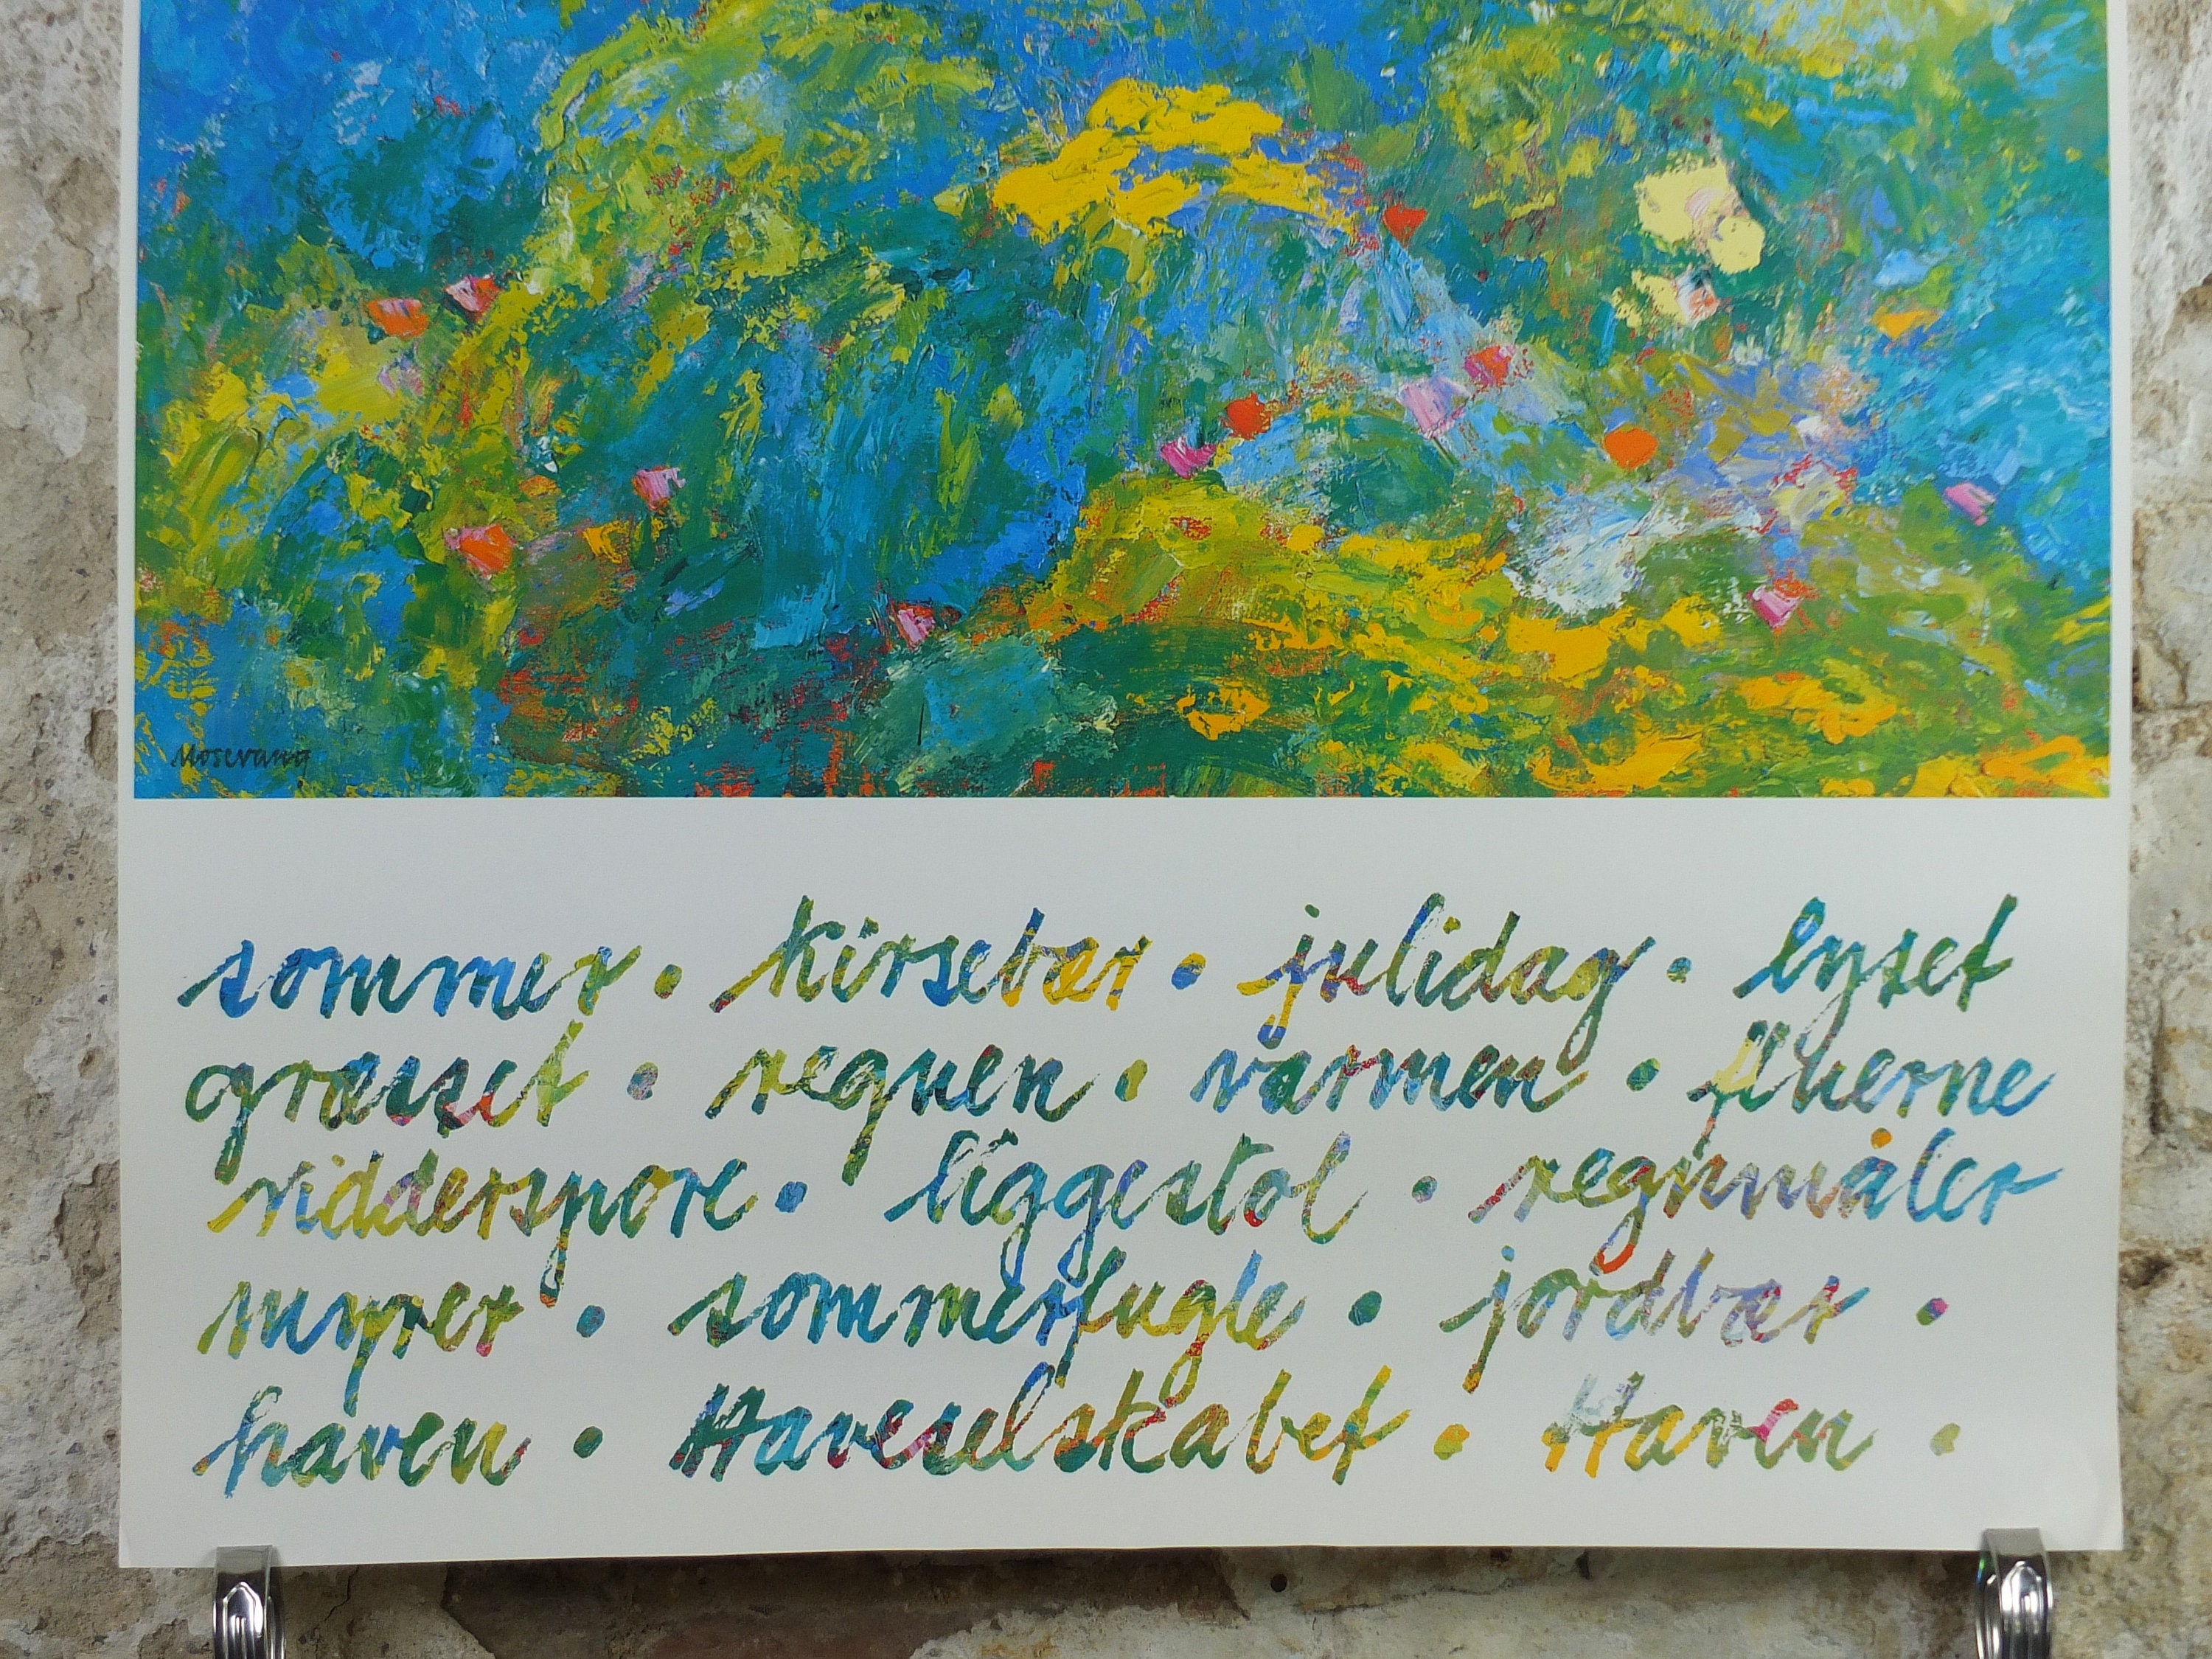 Mosevang
sommer • kirsebær • julidag • lyset
græsset • regnen • varmen • fluerne
ridderspore • liggestol • regnmåler
myrer • sommerfugle • jordbær •
haven • Haveselskabet • Haven •